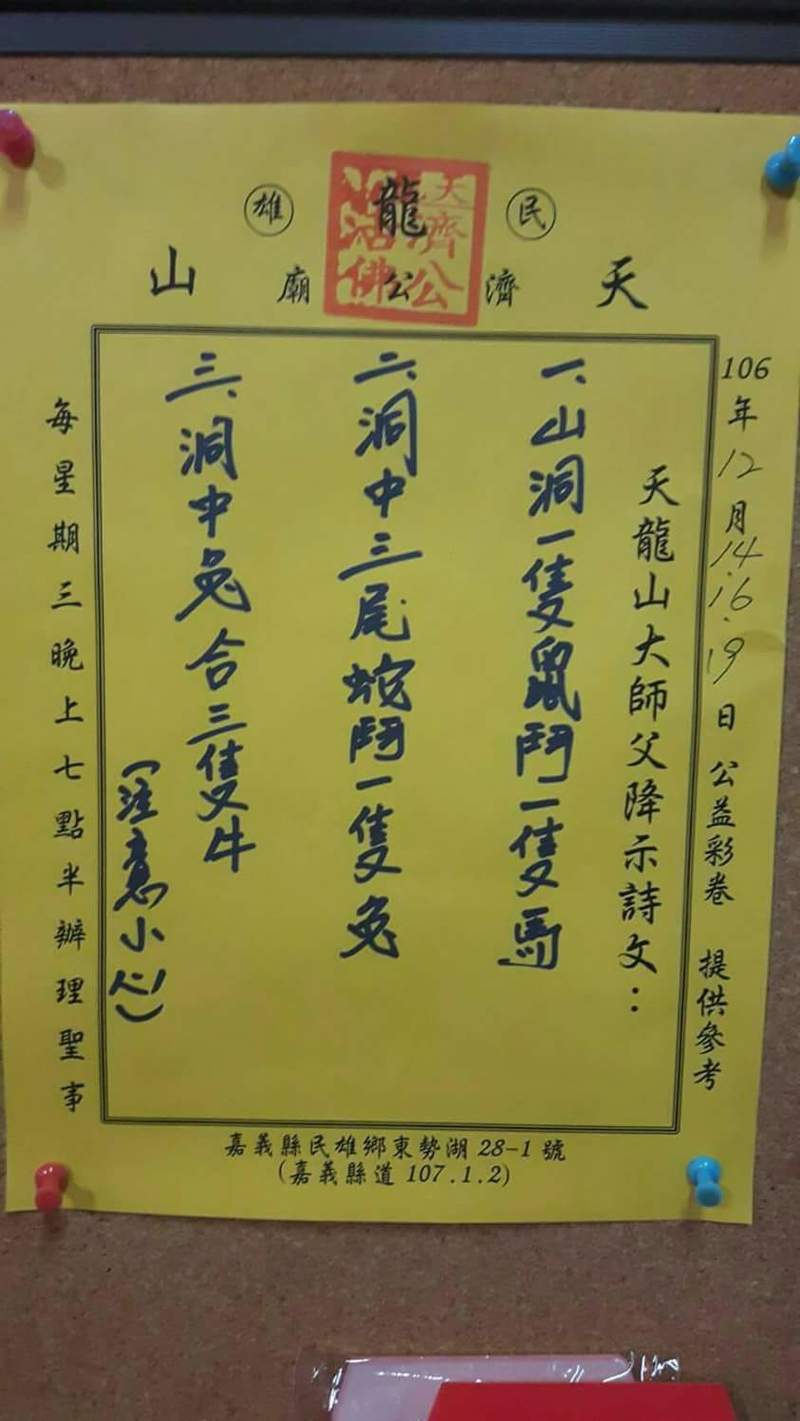 民雄
天龍山
濟公廟
濟公
活佛
106年12月14.16.19日 公益彩卷 提供參考
天龍山大師父降示詩文：
一、山洞一隻鼠鬥一隻馬
二、洞中三尾蛇鬥一隻兔
三、洞中兔合三隻牛
(注意小心)
每星期三晚上七點半辦理聖事
嘉義縣民雄鄉東勢湖 28-1 號
(嘉義縣道 107.1.2)